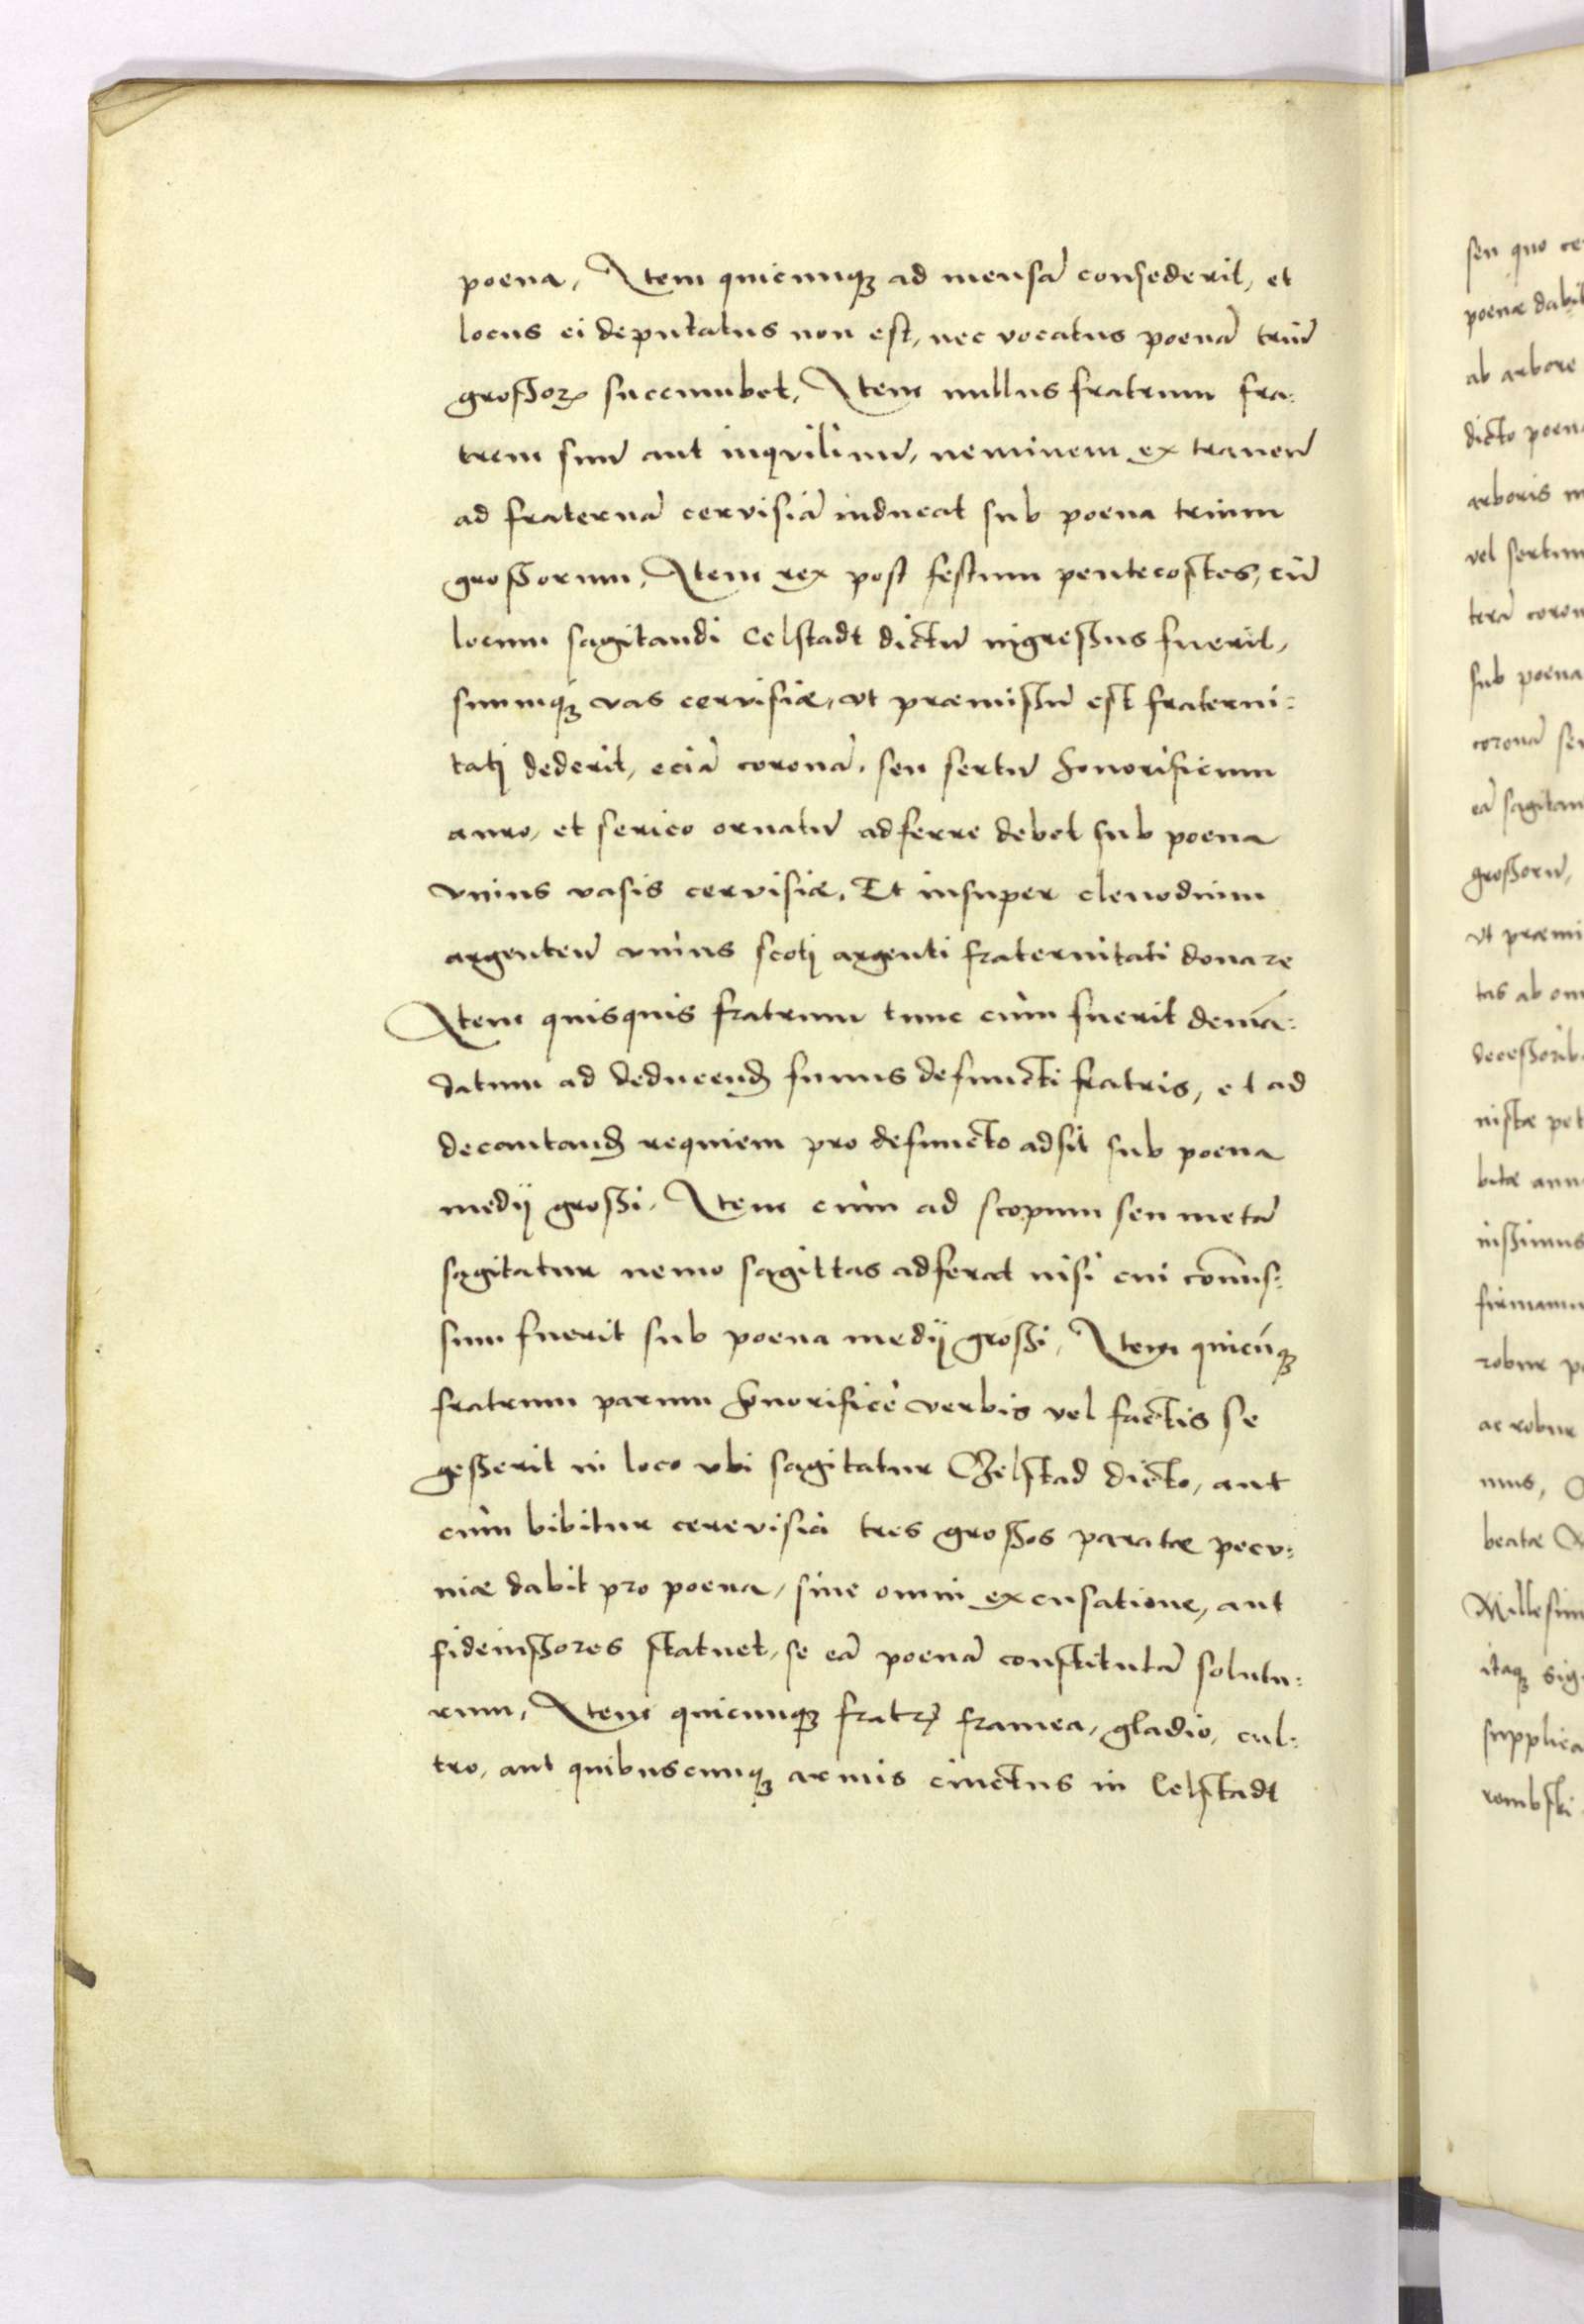 poena, Item quicunqꝫ ad mensā consederit, et
locus ei deputatus non est, nec vocatus poenā triū
großorꝝ succumbet, Item nullus fratrum fra:
trem suū aut inquilinū, neminem extraneū
ad fraternā cervisiā inducat sub poena trium
großorum, Item rex post festum pentecostes, cū
locum sagitandi Celstadt dictū ingreßus fuerit,
suumqꝫ vas cervisiæ, vt præmißū est fraterni:
tatj dederit, eciā coronā, seu sertū honorificum
auro, et serico ornatū adferre debet sub poena
vnius vasis cervisiæ. Et insuper clenodium
argenteū vnius scotj argenti fraternitati donare
Item quisquis fratrum tunc cùm fuerit demā:
datum ad deducend funus defuncti fratris, et ad
decantand requiem pro defuncto adsit sub poena
medij großi. Item cùm ad scopum seu metā
sagitatur nemo sagittas adferat nisi cui com̄is:
sum fuerit sub poena medij großi, Item quicūqꝫ
fratrum parum honorificè verbis vel factis se
geßerit in loco vbi sagitatur Czelstad dicto, aut
cùm bibitur cerevisia tres großos paratæ pecu:
niæ dabit pro poena, sine omni excusatione, aut
fideiußores statuet, se eā poenā constitutā solutu:
rum, Item quicunqꝫ fratrꝫ framea, gladio, cul:
tro, aut quibuscunqꝫ armis cinctus in Celstadt
sen quo ce
poenæ dabit
ab arbore
dicto poena
arboris
vel sertum
terā coron
sub poena
coronā seu
eā sagitan
großorū,
vt præmi
tas ab om
deceßorib
nistæ pet
bitæ ann
inßimus
firmamu
robur p
ac robur
mus,
beatæ
Millesim
itaqꝫ sig
supplica
rombski